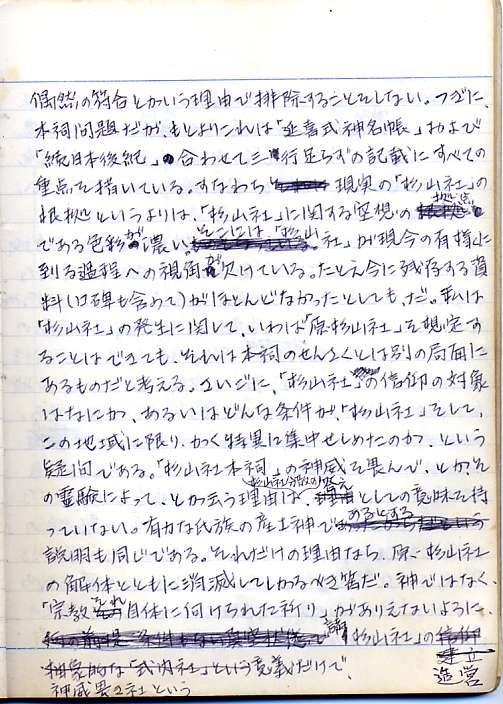 偶然の符合とかいう理由で排除することをしない。つぎに、
本祠問題だが、もとよりこれは「延喜式神名帳」および
「続日本後紀」合わせて三行足らずの記載にすべての
重点を措いている。すなわち現実の「杉山社」の
根拠というよりは、「杉山社」に関する空想の拠点
である色彩が濃い。そこには、「杉山社」が現今の有様に
到る過程への視御が欠けている。たとえ今に残存する資
料(口碑も含めて)がほとんどなかったとしても、だ。私は
「杉山社」の発生に関して、いわば「原杉山社」を想定す
ることはできても、それは本祠のせんさくとは別の局面に
あるものだと考える。さいごに、「杉山社」の信仰の対象
はなにか、あるいはどんな条件が、「杉山社」をして、
この地域に限り、かく特異に集中せしめたのか、という
疑問である。「杉山社本祠」の神威を畏んで、とか、そ
の霊験によって、とか云う理由は、杉山社分散の答えとしての意味を持
っていない。有力な氏族の産土神であるとする
説明も同じである。それだけの理由なら、原・杉山社
の解体とともに消滅してしかるべき筈だ。神ではなく、
「宗教それ自体に向けられた祈り」がありえないように
諸「杉山社」の
建立
造営
抽象的な「式内社」という意義だけで、
神威畏る社という